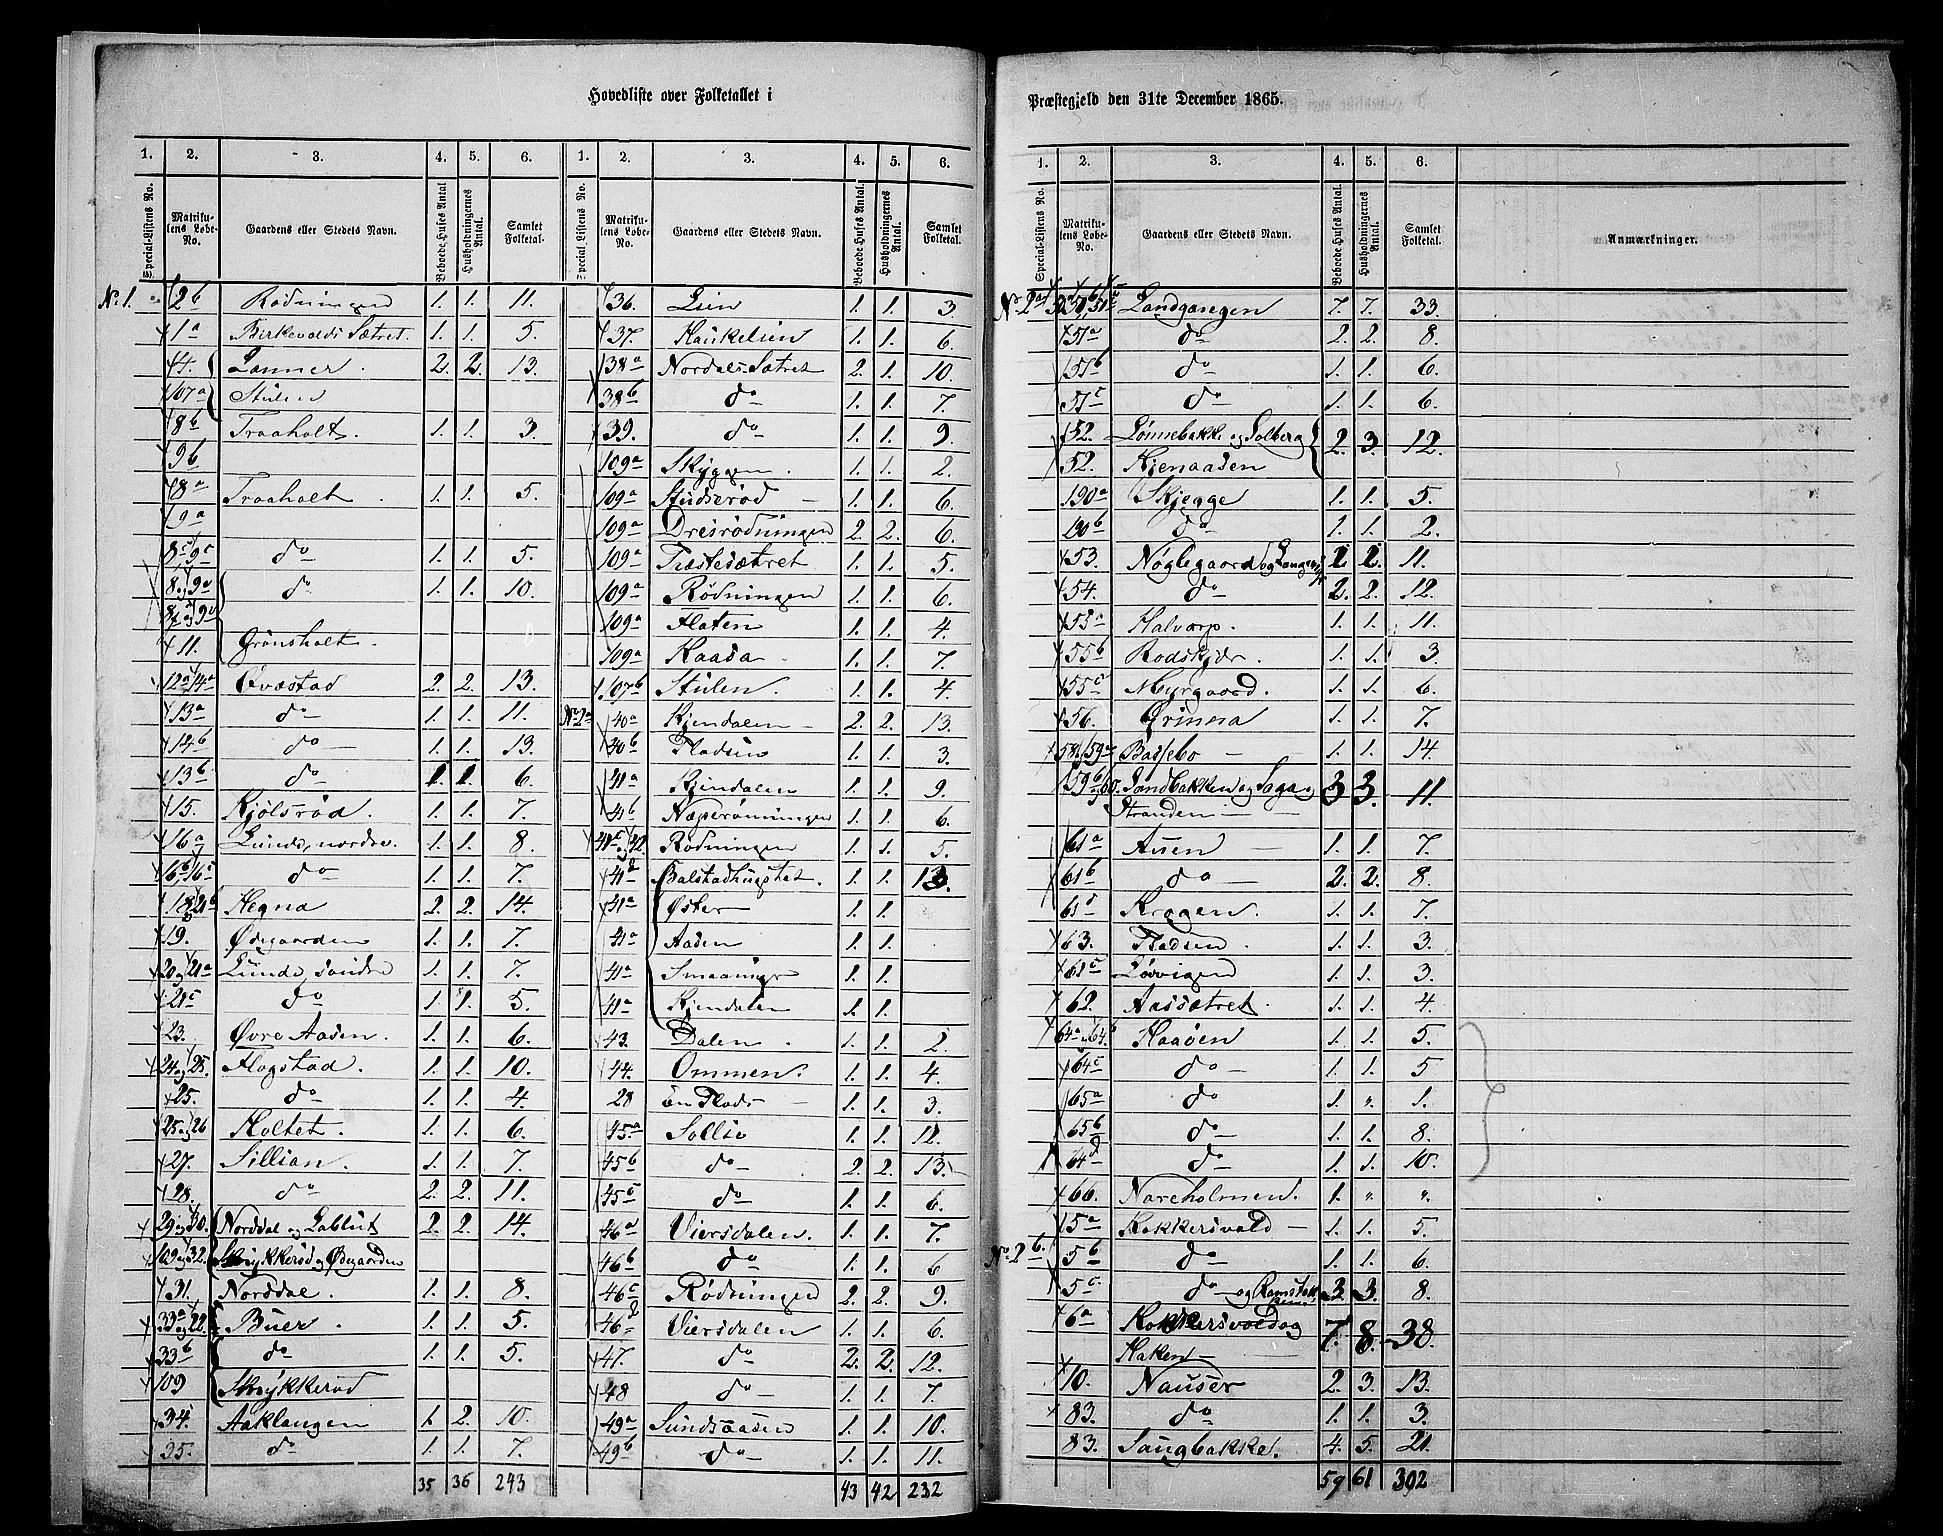 Hovedliste over Folketallet i
1. 2. 3. 4. 5. 6. 1. 2. 3. 4. 5. 6.
Special-Listens No. Matrikulens Løbe-No. Gaardens eller Stedets Navn. Beboede Huses Antal Husholdningernes Antal. Samlet Folketal. Special-Listens No. Matrikulens Løbe-No. Gaardens eller Stedets Navn. Beboede Huses Antal. Husholdningernes Antal. Samlet Folketal.
No 1. 2b Rødningen 1. 1. 11.
1a Birkevolds Sætret. 1. 1. 5.
4. Lanner. 2. 2. 13.
107a Stulen
8b Traaholt. 1. 1. 3.
9b
8a Traaholt 1. 1. 5.
9a
8c 9c do 1. 1. 5.
do 1. 1. 10.
11. Grønsholt.
12a 14a Qvæstad 2. 2. 13.
13a do 1. 1. 11.
14b do 1. 1. 13.
13b do 1. 1. 6.
15. Kjølsrød. 1. 1. 7.
16a Lunde, nordre. 1. 1. 8.
16b, 16c do 1. 1. 7.
18 21b Hegna 2. 2. 14.
19. Øsegaarden 1. 1. 7.
20 og 21a Lunde søndre 1. 1. 7.
21c do 1. 1. 5.
23. Øvre Aasen. 1. 1. 6.
24 og 25. Flogstad. 1. 1. 10.
25. do 1. 1. 4.
25 og 26 Holtet. 1. 1. 6.
27. Sillian. 1. 1. 7.
28. do 2. 2. 11.
29 og 30. Norddal og Lablut 2. 2. 14.
109 og 32. Skrykkerød og Øsegaarden
31. Norddal. 1. 1. 8.
33a og 22. Buer. 1. 1. 5.
33b do 1. 1. 5.
109 Skrykkerød
34. Aaklangen 1. 2. 10.
35. do 1. 1. 7.
35 36 243
36. Lien 1. 1. 3.
37. Haukelien 1. 1. 6.
38a Nordals Sætret 2. 1. 10.
38b do 1. 1. 7.
39. do 1. 1. 9.
109a Skyggen. 1. 1. 2.
109a Studserød 1. 1. 6.
109a Dreisrødningen 2. 2. 6.
109a Tistesætret 1. 1. 5.
109a Rødningen 1. 1. 6.
109a Floten 1. 1. 4.
109a Kaasa 1. 1. 7.
107b Stulen. 1. 1. 4.
No 2a 40a Kjendalen 2. 2. 13.
40b Pladsen 1. 1. 3.
41a Kjendalen 1. 1. 9.
41b Næperønningen 1. 1. 6.
41c og 42. Rødningen 1. 1. 5.
41d Balstadhugstet. 1. 1. 13.
41a Øster 1. 1.
41a Aasen 1. 1.
41a 1. 1.
41a Kjendalen 1. 1.
43. Dalen. 1. 1. 2.
44. Ommen. 1. 1. 4.
28 en Plads 1. 1. 3.
45a Sollie 1. 1. 12.
45b do 2. 2. 13.
45c do 1. 1. 6.
46a Viersdalen. 1. 1. 7.
46b do 1. 1. 6
46c Rødningen 2. 2. 9.
46d Viersdalen 1. 1. 6.
47. do 2. 2. 12.
48 do 1. 1. 7.
49a Sundsaasen 1. 1. 10.
49b do 1. 1. 11.
43 42 232
Præstegjeld den 31te December 1865.
1. 2. 3. 4. 5. 6.
Special-Listens No. Matrikulens Løbe-No. Gaardens eller Stedets Navn. Beboede Huses Antal. Husholdningernes Antal. Samlet Folketal. Anmærkninger.
No 2a Landgangen 7. 7. 33.
51a do 2. 2. 8.
51b do 1. 1. 6.
51c do 1. 1. 6.
52. Lønnebakke og Solberg 2. 3. 12.
52. Kjenaasen
190a Skjegge 1. 1. 5.
190b do 1. 1. 2.
53. Nøglegaard og Langen 2 2. 11.
54. do 2. 2. 12.
55a Halvorp. 1. 1. 11.
55b Rodskjær. 1. 1. 3.
55c Myrgaard. 1. 1. 6.
56. Grimsa 1. 1. 7.
58, 59a Bassebo 1. 1. 14.
59b og 60. Sandbakken og Saga og 3 3. 11.
Stranden
61a Auen 1. 1. 7.
61b do 2. 2. 8.
61c Krogen. 1. 1. 7.
63. Pladsen. 1. 1. 3.
61c Løvvigen 1. 1. 3.
62. Aassætret. 1. 1. 4.
64a 64b Haaøen 1. 1. 5.
64c do 1. 1. 5
65a do 1. " 1.
65b do 1. 1. 8.
64d do 1. 1. 10.
66. Nareholmen. 1. " "
5a Kokkersvold 1. 1. 5.
No 2b. 5b do 1. 1. 6.
5c do og 3. 3. 8.
6a Kokkersvold og 7. 8. 38.
Haken
10. Nauser 2. 3. 13.
83. do 1. 1. 3.
83. Saugbakke. 4. 5. 21.
59 61 392